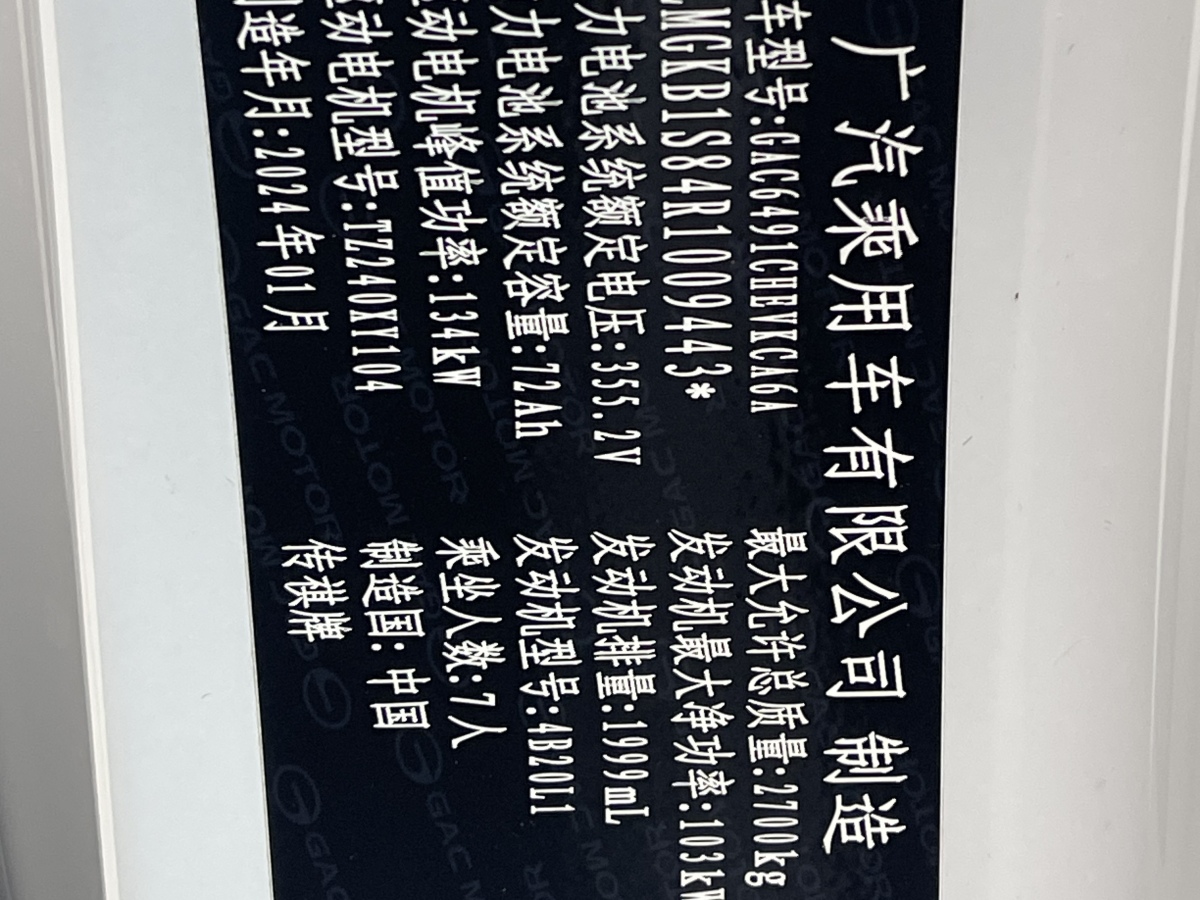 广汽乘用车有限公司 制造
车型号:GAC6491CHEVKCA6A
最大允许总质量:2700kg
MGKB1S84R1009443*
发动机最大净功率:103kW
力电池系统额定电压:355.2V
发动机排量:1999mL
力电池系统额定容量:72Ah
发动机型号:4B20L1
动电机峰值功率:134kW
乘坐人数:7人
动电机型号:TZ240XY104
制造国:中国
造年月:2024年01月
传祺牌
GAC MOTOR